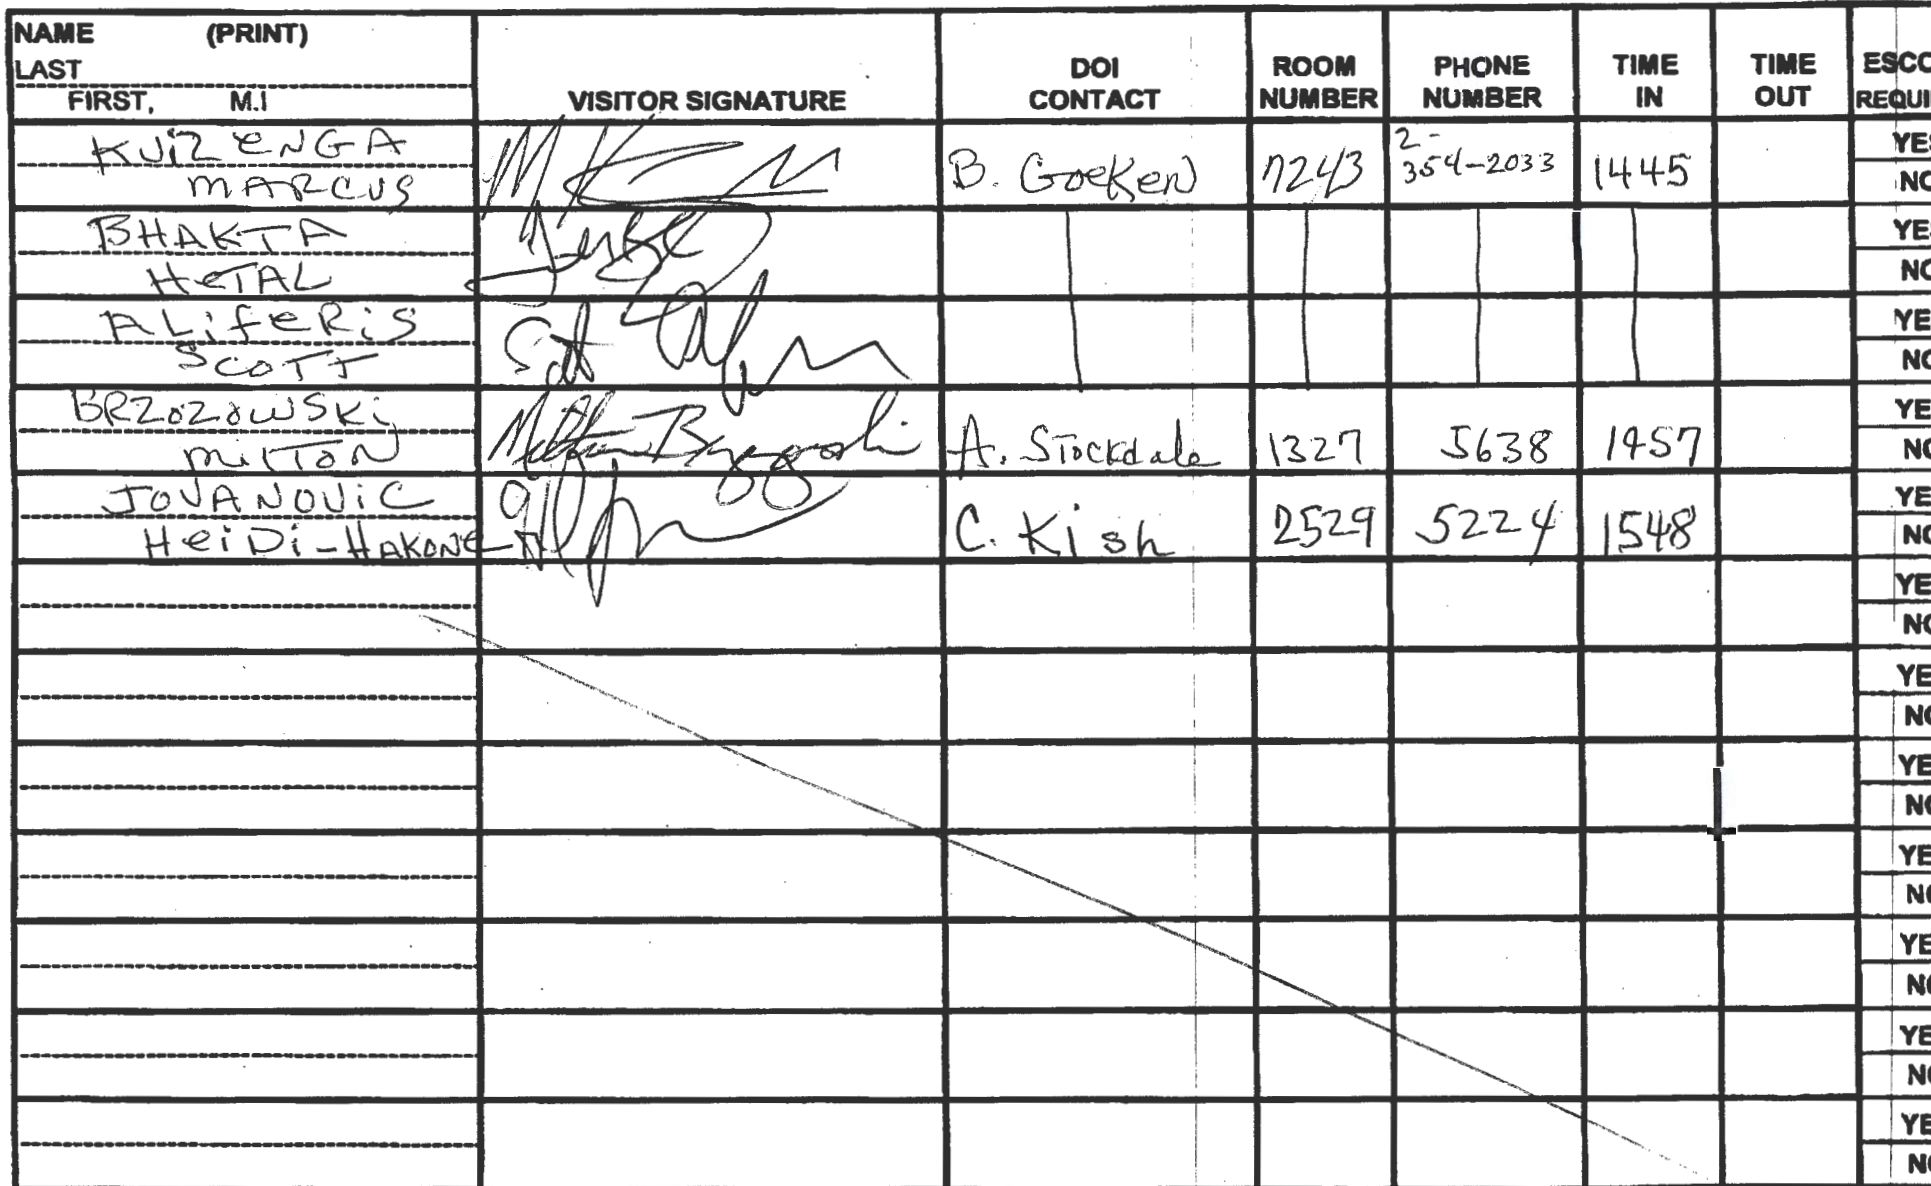 NAME (PRINT)
LAST
FIRST, M.I
VISITOR SIGNATURE
DOI
CONTACT
ROOM
NUMBER
PHONE
NUMBER
TIME
IN
TIME
OUT
ESCO
REQUI
KUIZENGA
MARCUS
B. Goeken
7243
2-
354-2033
1445
YES
NO
BHAKTA
HeTAL
YE
NO
ALifeRiS
SCOTT
YE
NO
BRZOZOWSKi,
MiLTON
Milton Brzozowski
A. Stockdale
1327
5638
1457
YE
NO
JOVANOViC
HeiDi-HAKONE
C. Kish
2529
5224
1548
YE
NO
YE
NO
YE
NO
YE
NO
YE
NO
YE
NO
YE
NO
YE
NO